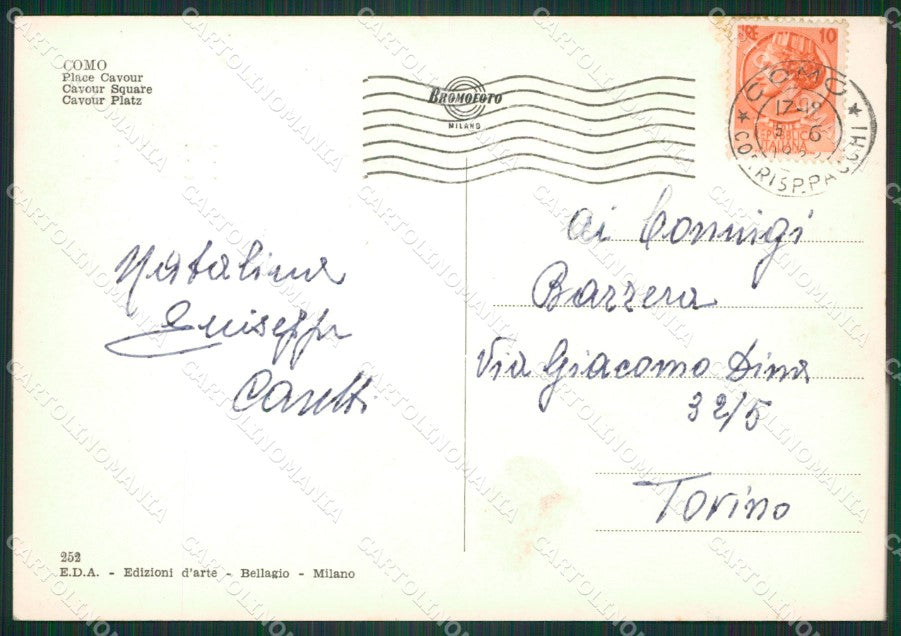 COMO
Place Cavour
Cavour Square
Cavour Platz
BROMOFOTO
MILANO
LIRE 10
COMO
17-18
6
CORRISP. PACCHI
REPUBBLICA
ITALIANA
Ai Coniugi
Bazzera
Via Giacomo Dina
32/5
Torino
Natalina
Giuseppe
Casetti
252
E.D.A. - Edizioni d'arte - Bellagio - Milano
CARTOLINOMANIA